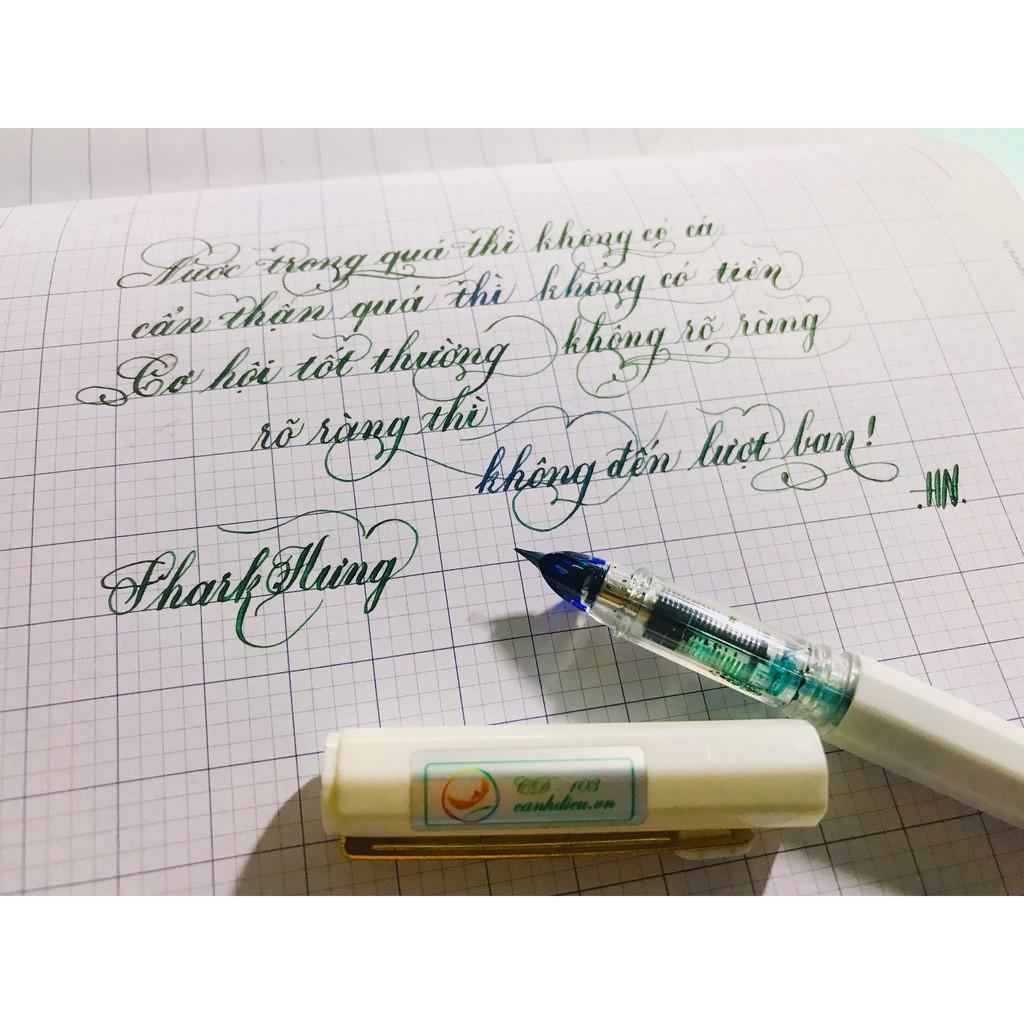 Nước trong quá thì không có cá
cẩn thận quá thì không có tiền
Cơ hội tốt thường không rõ ràng
rõ ràng thì
không đến lượt bạn!
.HN.
Shark Hưng
CD - 103
canhdieu.vn